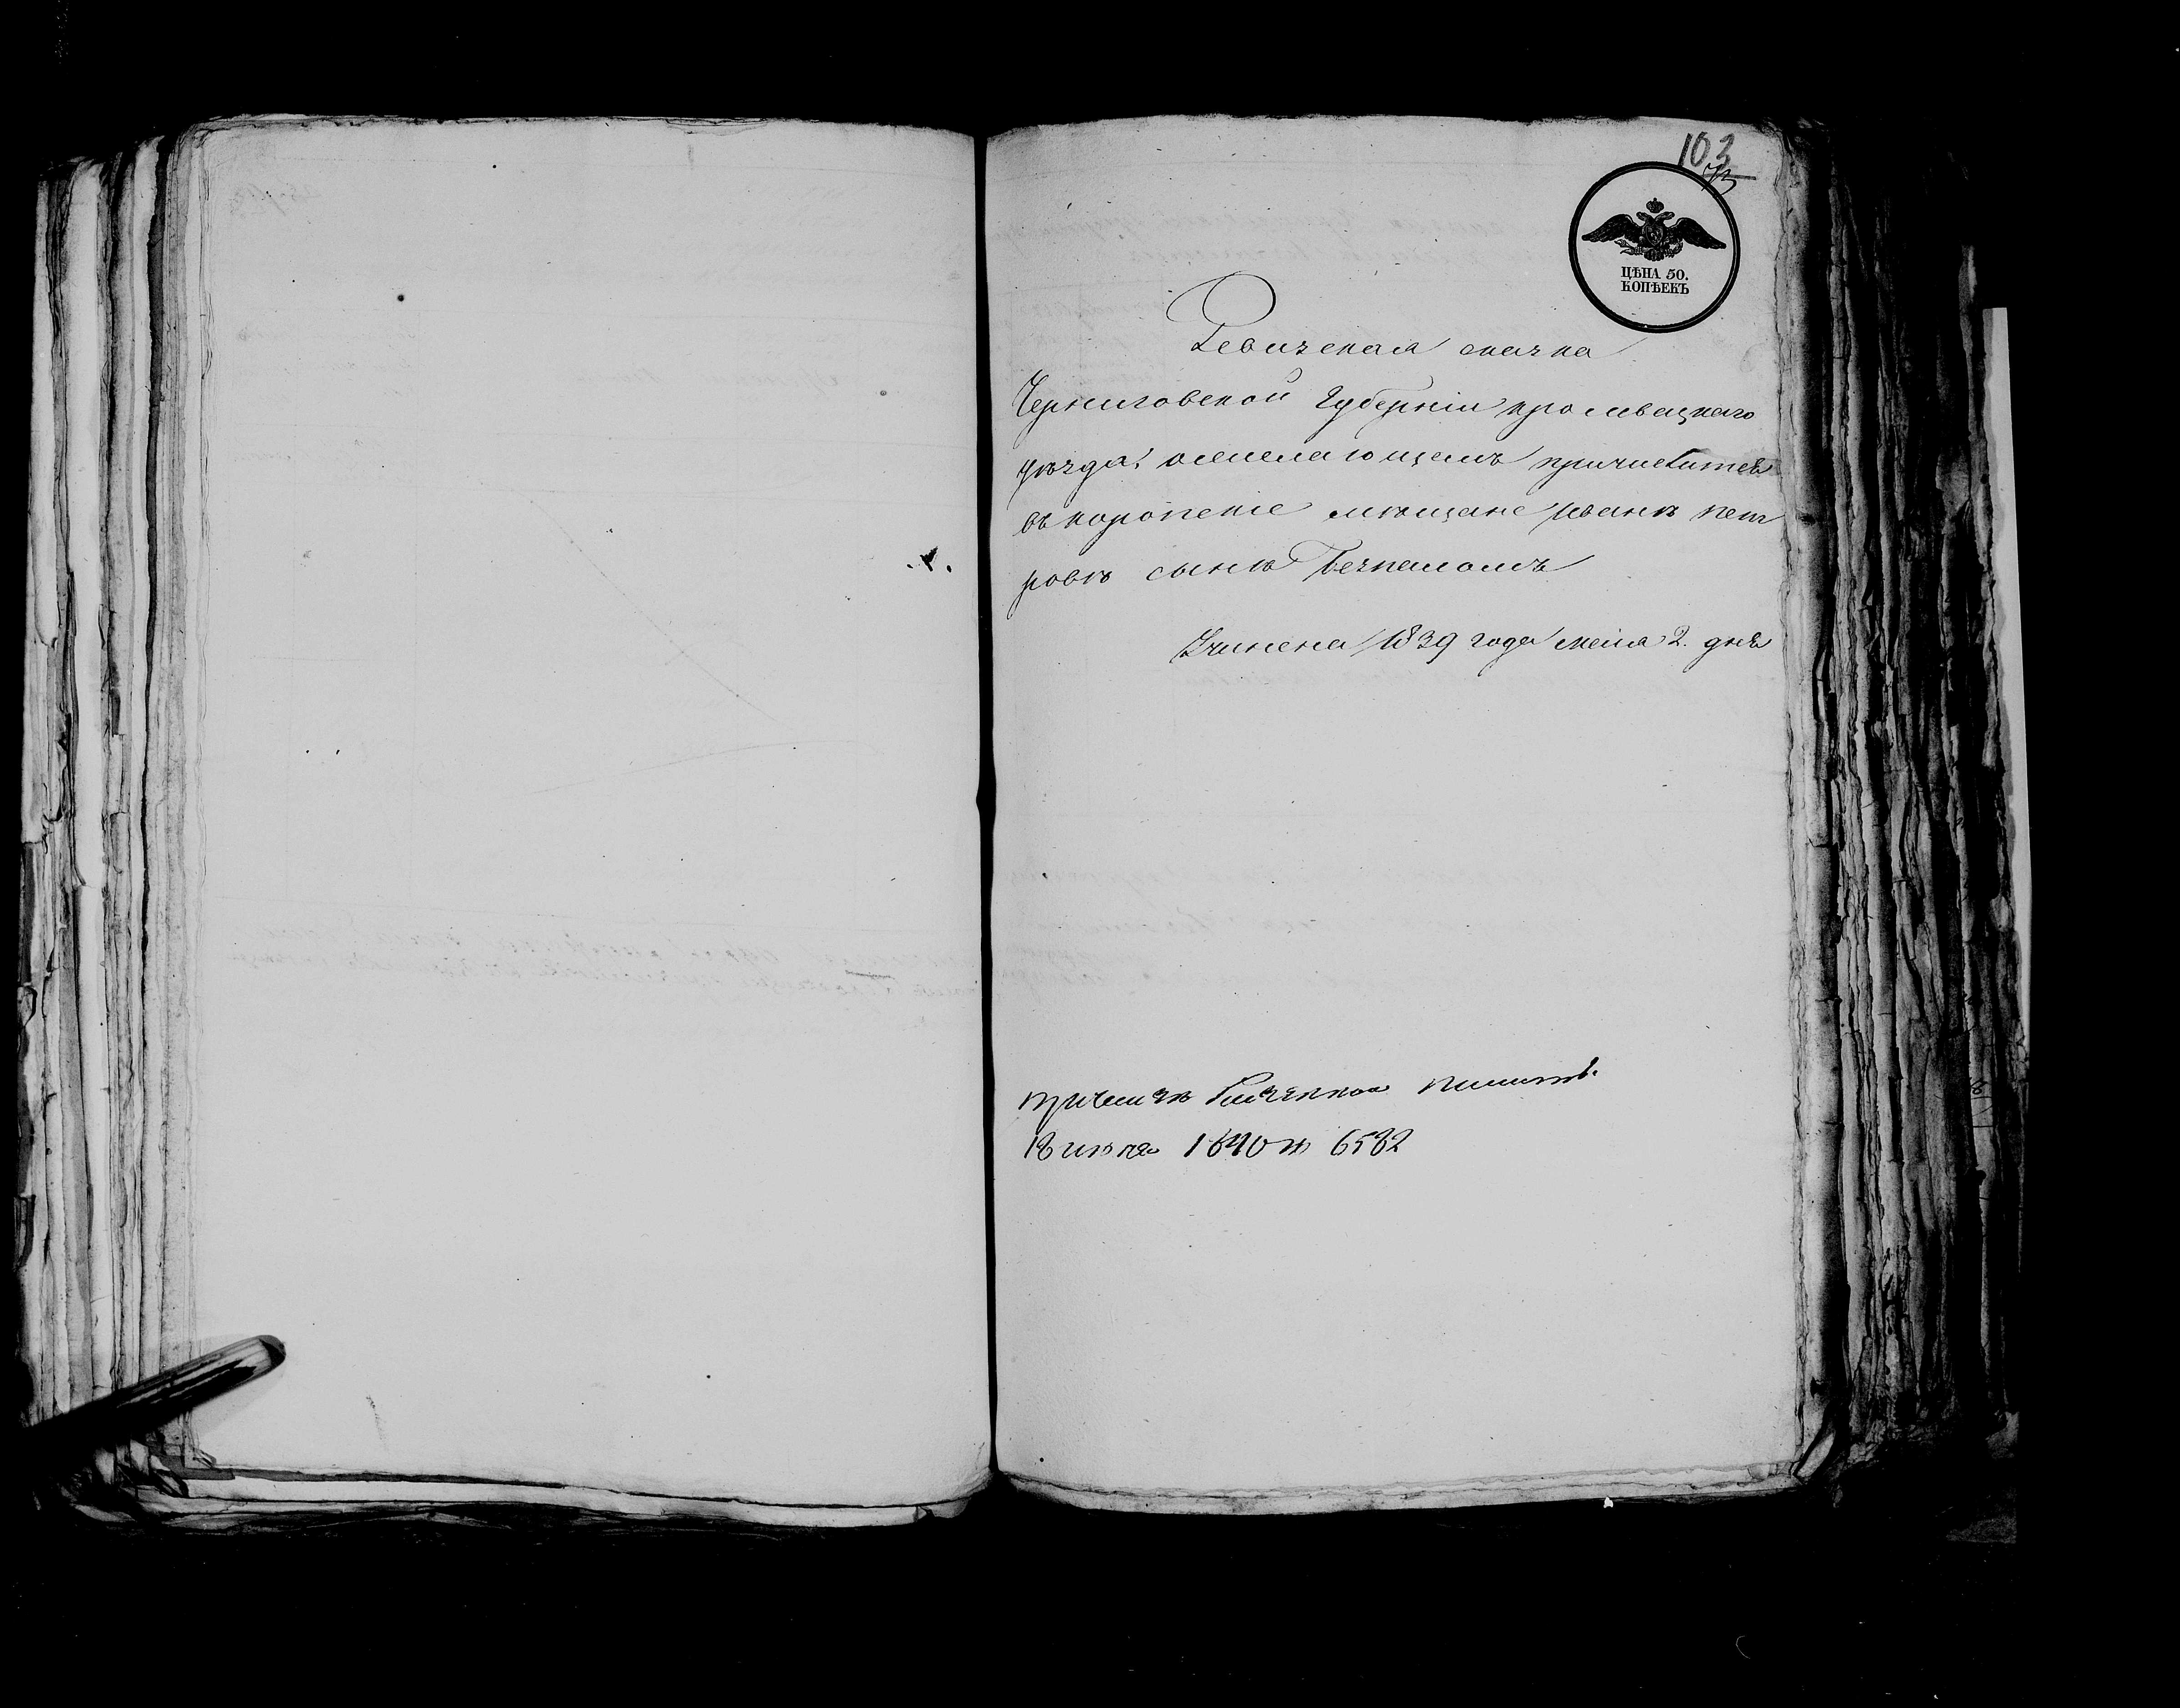 103
ЦѢНА 50.
КОПѢЕКЪ
Ревизская сказка
Черниговской Губерніи кролевецкаго
уѣзда, о желающемъ причислится
въ коропскіе мѣщане Иванѣ Пет
ровѣ сынѣ Безпаломъ
Учинена 1839 года маія 2. дня
1840 № 6582